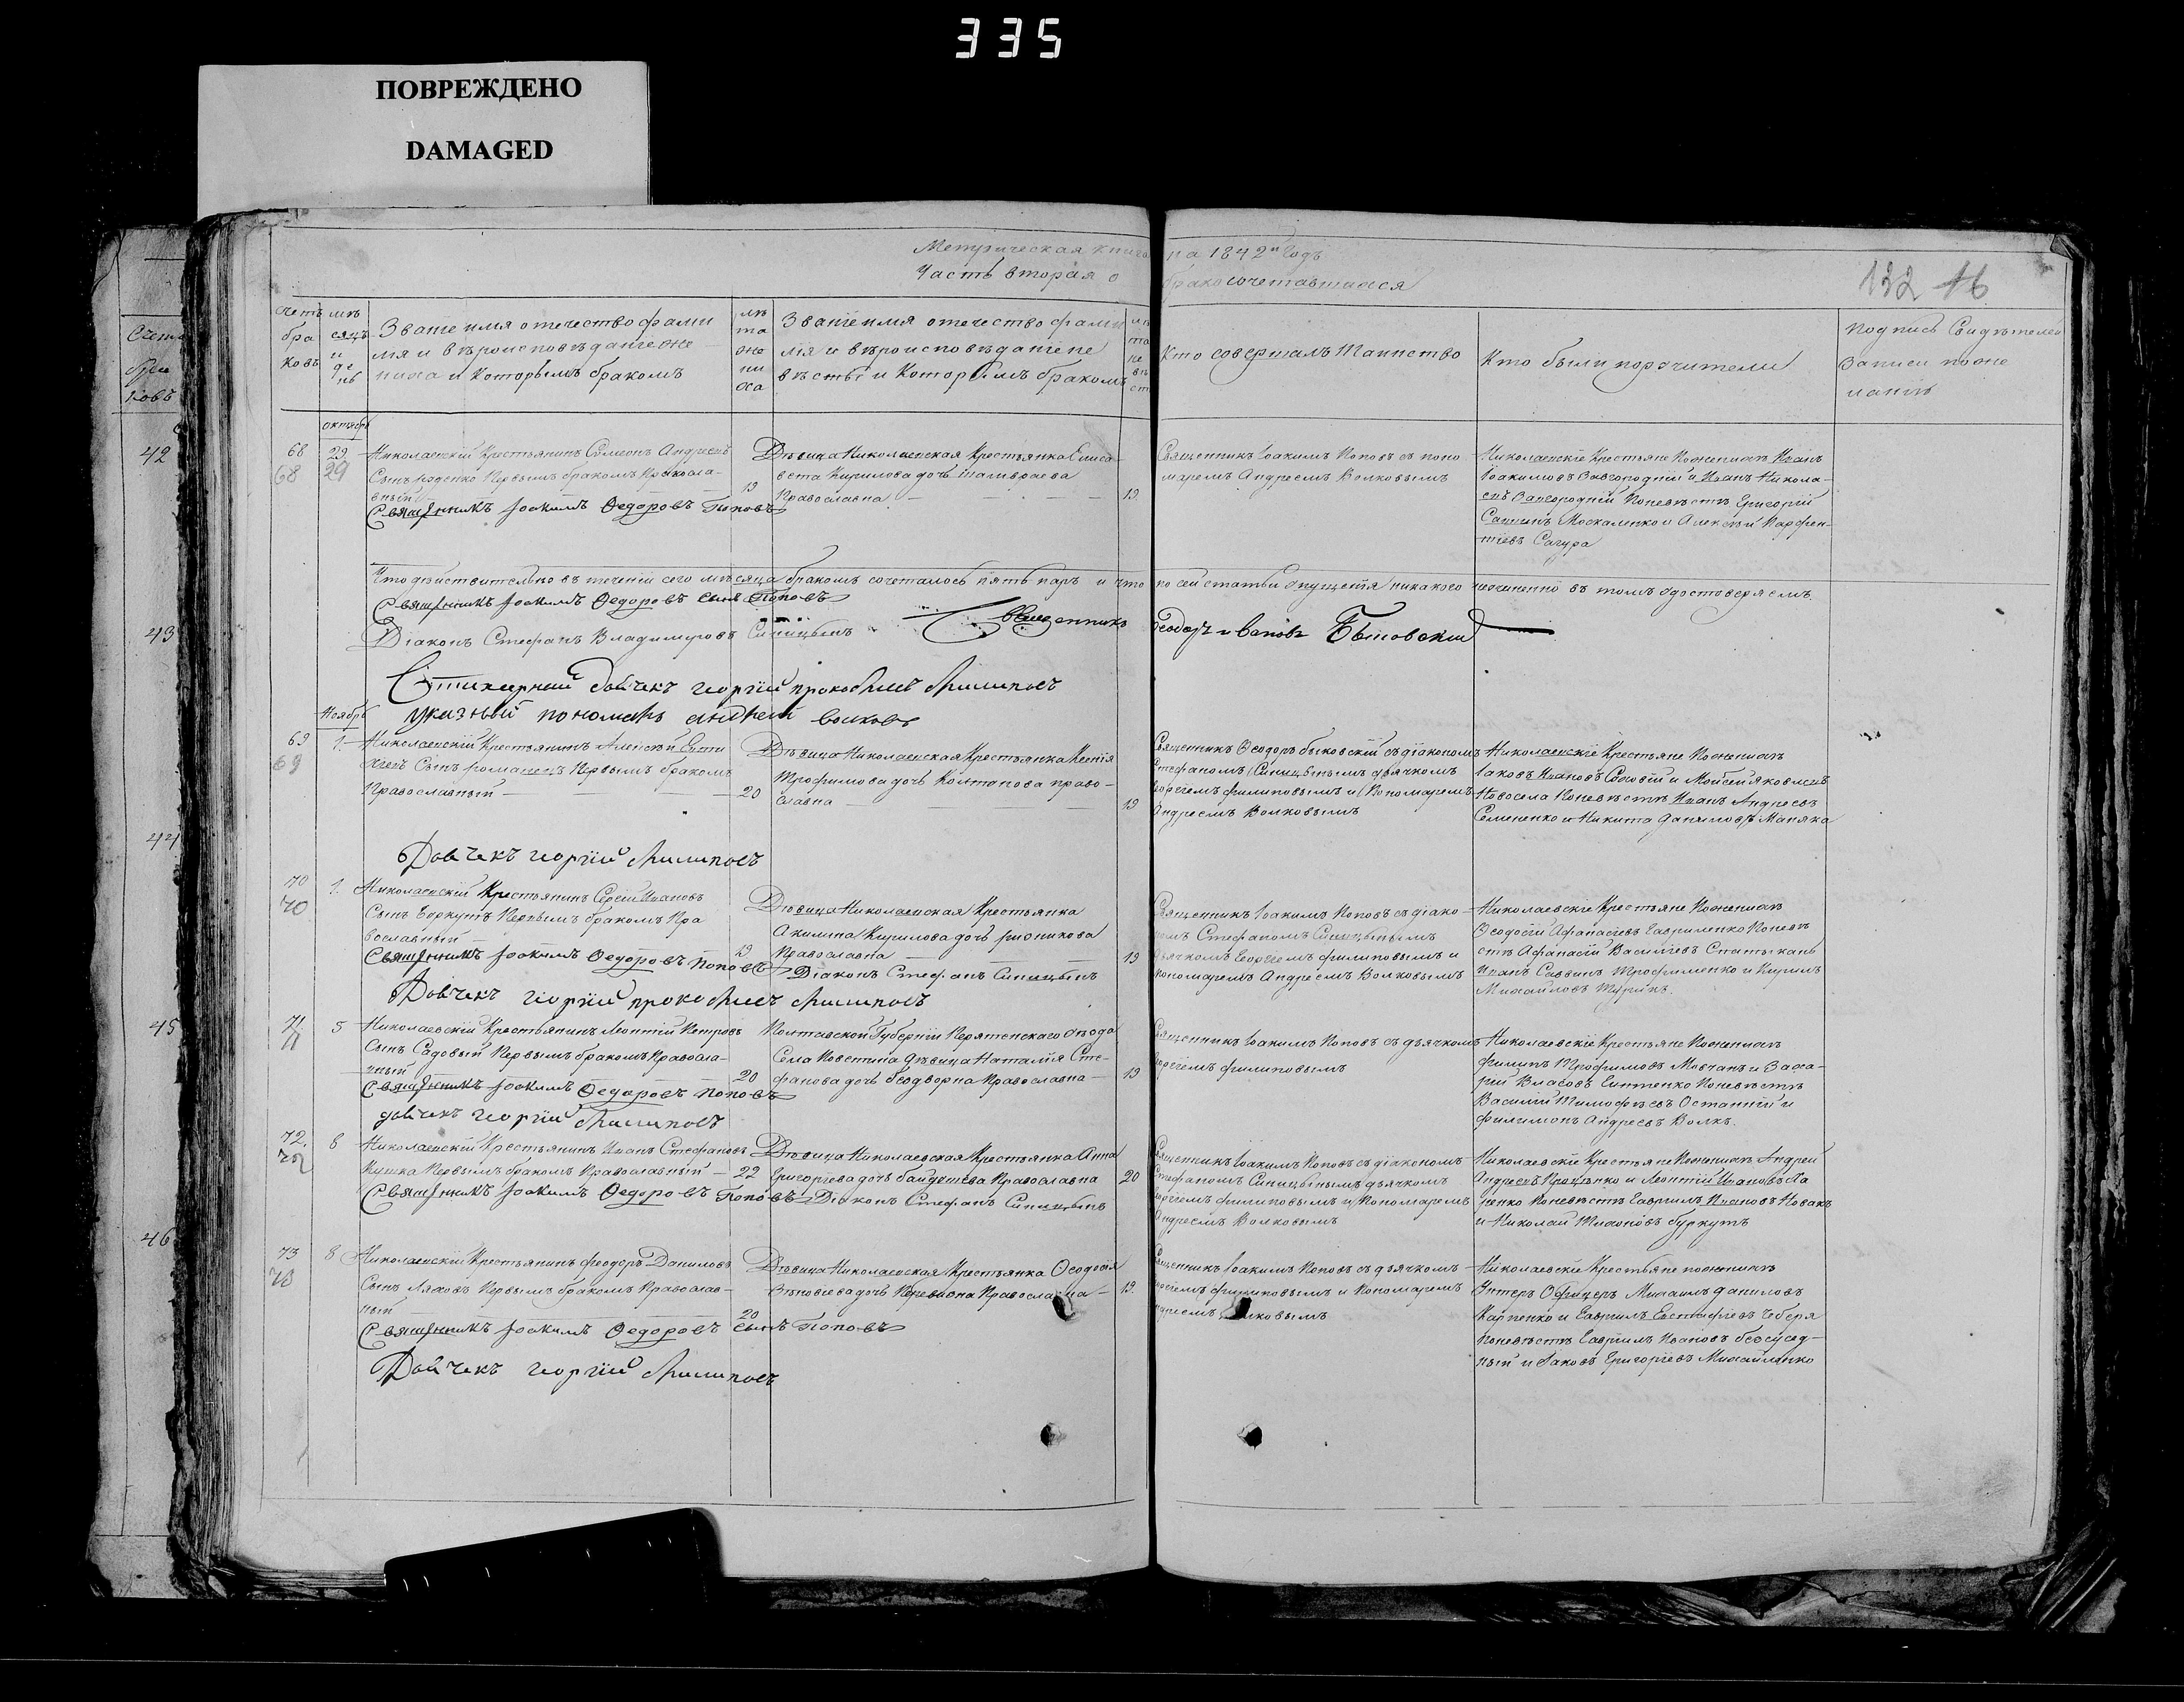 335
ПОВРЕЖДЕНО
DAMAGED
Метрическая книга на 1842й Годъ
Часть вторая о бракосочетавшихся
132 16
Счетъ браковъ
мѣсяцъ и день
Званіе имя отечество фамилія и вѣроисповѣданіе жениха и которымъ бракомъ
лѣта жениха
Званіе имя отечество фамилія и вѣроисповѣданіе невѣсты и Которымъ бракомъ
Кто совершалъ Таинство
Кто были поручители
Подпись Свидѣтелей
Записи по же
ланію
42
43
44
45
46
октябрь
68
68
29
29
Николаевскій Крестьянинъ Симеонъ Андреевъ
Сынъ Первымъ бракомъ Правосла-
вный
19
Священникъ Іоакимъ Ѳедоровъ Поповъ
Дѣвица Николаевская Крестьянка Елиса-
вета Кирилова дочь
Православна
19
Священникъ Іоакимъ Поповъ съ поно
маремъ Андреемъ Волковымъ
Николаевскіе Крестьяне По женихѣ Иванъ
Іоакимовъ Завгородній и Иванъ Никола-
евъ Завгородній По невѣстѣ Григорій
Москаленко и Алексѣй Парфен-
тіевъ Сагура
Что дѣйствительно въ теченіи сего мѣсяца бракомъ сочеталось пять паръ и что по сей статьи опущенія никакого неучиненно въ томъ удостоверяемъ
Священникъ Іоакимъ Ѳедоровъ сынъ Поповъ
Священникъ Ѳеодоръ Ивановъ Быковскій
Діаконъ Стефанъ Владимировъ Синицынъ
Стихарный Дьячекъ Георгій Прокофіевъ Филиповъ
указный пономарь андрей волковъ
Ноябрь
69
69
1
Николаевскій Крестьянинъ Алексѣй Евти
хіевъ Сынъ романецъ Первымъ бракомъ
Православный
20
Дѣвица Николаевская Крестьянка Ксенія
Трофимова дочь Колтонова право-
славна
19
Священникъ Ѳеодоръ быковскій съ діакономъ
Стефаномъ Синицынымъ дьячкомъ
Георгіемъ филиповымъ и Пономаремъ
Андреемъ Волковымъ
Николаевскіе Крестьяне По женихѣ
Іаковъ Ивановъ и Мойсей Яковлевъ
Новосела По невѣстѣ Иванъ Андреевъ
Семененко и Никита Даниловъ Маняка
Дьячекъ Георгій Филиповъ
70
70
1.
Николаевскій Крестьянинъ Сергій Ивановъ
Сынъ Боркутъ Первымъ бракомъ Пра
вославный
19
Священникъ Іоакимъ Ѳедоровъ Поповъ
Дѣвица Николаевская Крестьянка
Акилина Кирилова дочь
Православна
19
Діаконъ Стефанъ Синицынъ
Дьячекъ Георгій Прокофіевъ Филиповъ
Священникъ Іоакимъ Поповъ съ діако-
номъ Стефаномъ Синицынымъ
дьячкомъ Георгіемъ филиповымъ и
Пономаремъ Андреемъ Волковымъ
Николаевскіе Крестьяне По женихѣ
Ѳеодосій Афанасіевъ Гавриленко По невѣ
стѣ Афанасій Василіевъ
Иванъ Саввинъ Трофименко и Кирилъ
Михайловъ
71
71
5
Николаевскій Крестьянинъ Леонтій Петровъ
Сынъ Садовый Первымъ бракомъ Правосла-
вный
20
Священникъ Іоакимъ Ѳедоровъ Поповъ
Дьячекъ Георгій Филиповъ
Полтавской Губерніи уѣзда
Села дѣвица Наталія Сте-
фанова дочь Православна
19
Священникъ Іоакимъ Поповъ съ дьячкомъ
Георгіемъ филиповымъ
Николаевскіе Крестьяне По женихѣ
филипъ Трофимовъ Мовчанъ и Заха-
рій Власовъ По невѣстѣ
Василій Тимофѣевъ Останній и
Филимонъ Андреевъ Волкъ.
72.
72
8
Николаевскій Крестьянинъ Иванъ Стефановъ
Кишка Первымъ бракомъ Православный
22
Священникъ Іоакимъ Ѳедоровъ Поповъ
Дѣвица Николаевская Крестьянка Анна
Григоріева дочь Православна
20
Діаконъ Стефанъ Синицынъ
Священникъ Іоакимъ Поповъ съ діакономъ
Стефаномъ Синицынымъ дьячкомъ
Георгіемъ филиповымъ и Пономаремъ
Андреемъ Волковымъ
Николаевскіе Крестьяне По женихѣ Андрей
Андреевъ Проценко и Леонтій Ивановъ
По невѣстѣ Гавриилъ Ивановъ Новакъ
и Николай Тихоновъ буркутъ
73
73
8
Николаевскій Крестьянинъ феодоръ Даниловъ
Сынъ Ляховъ Первымъ бракомъ Православ-
ный
20
Священникъ Іоакимъ Ѳедоровъ сынъ Поповъ
Дьячекъ Георгій Филиповъ
Дѣвица Николаевская Крестьянка Ѳеодосія
дочь Православна
19.
Священникъ Іоакимъ Поповъ съ дьячкомъ
Георгіемъ филиповымъ и Пономаремъ
Андреемъ Волковымъ
Николаевскіе Крестьяне по женихѣ
Унтеръ Офицеръ Михаилъ даниловъ
Карпенко и Гавриилъ Евстафіевъ Чеберя
По невѣстѣ Гавриилъ Ивановъ
и Іаковъ Григоріевъ Михайленко